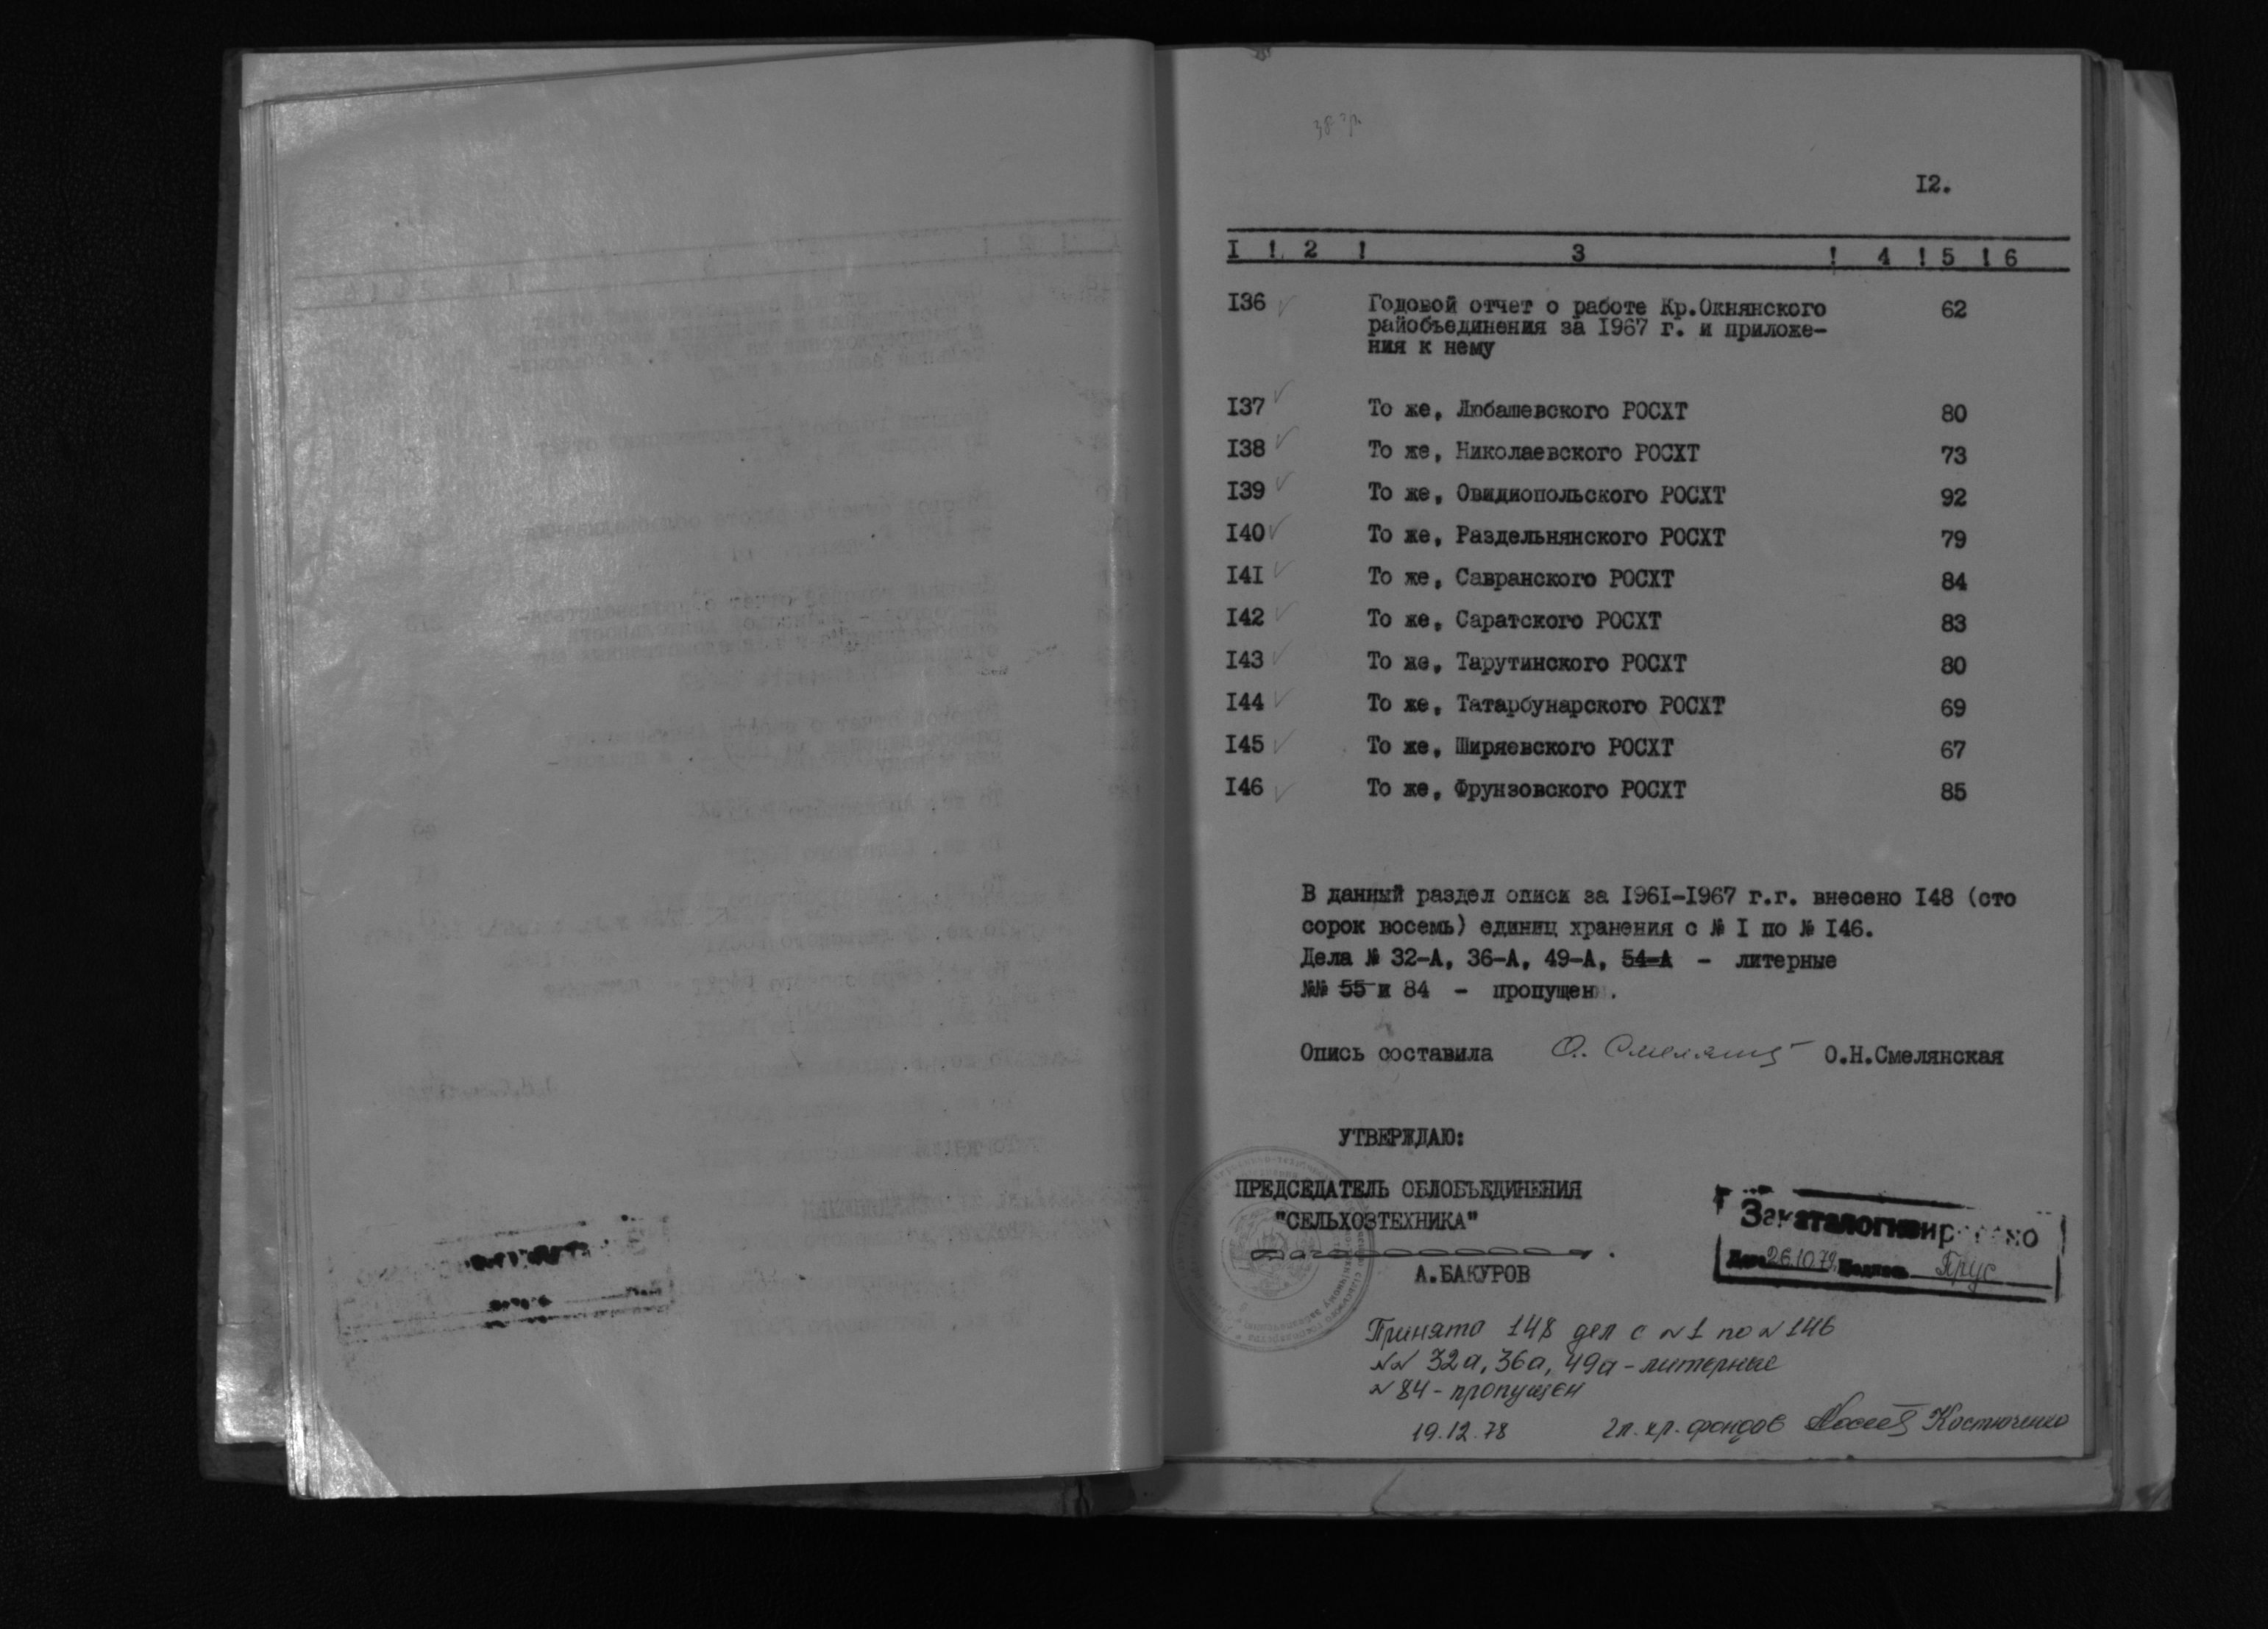 12.
I ! 2 ! 3 ! 4 ! 5 ! 6
I36 Годовой отчет о работе Кр.Окнянского 62
райобъединения за I967 г. и приложе-
ния к нему
I37 То же, Любашевского РОСХТ 80
I38 То же, Николаевского РОСХТ 73
I39 То же, Овидиопольского РОСХТ 92
I40 То же, Раздельнянского РОСХТ 79
I4I То же, Савранского РОСХТ 84
I42 То же, Саратского РОСХТ 83
I43 То же, Тарутинского РОСХТ 80
I44 То же, Татарбунарского РОСХТ 69
I45 То же, Ширяевского РОСХТ 67
I46 То же, Фрунзовского РОСХТ 85
В данный раздел описи за I96I-I967 г.г. внесено I48 (сто
сорок восемь) единиц хранения с № I по № I46.
Дела № 32-А, 36-А, 49-А, 54-А - литерные
№№ 55 и 84 - пропущены.
Опись составила О.Н.Смелянская
УТВЕРЖДАЮ:
ПРЕДСЕДАТЕЛЬ ОБЛОБЪЕДИНЕНИЯ
"СЕЛЬХОЗТЕХНИКА"
А.БАКУРОВ
Закаталогизировано
Дата 26.10.79 Подпись Прус
Принято 148 дел с №1 по №146
№№ 32а, 36а, 49а - литерные
№84 - пропущен
19.12.78 гл. хр. фондов Костюченко